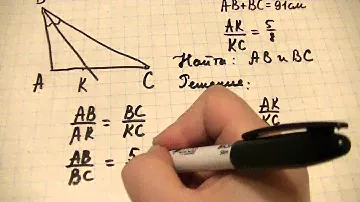 B
AB+BC=91см
AK/KC = 5/8
Найти: AB и BC
Решение:
A K C
AB/AK = BC/KC
AK
AB/BC = 5